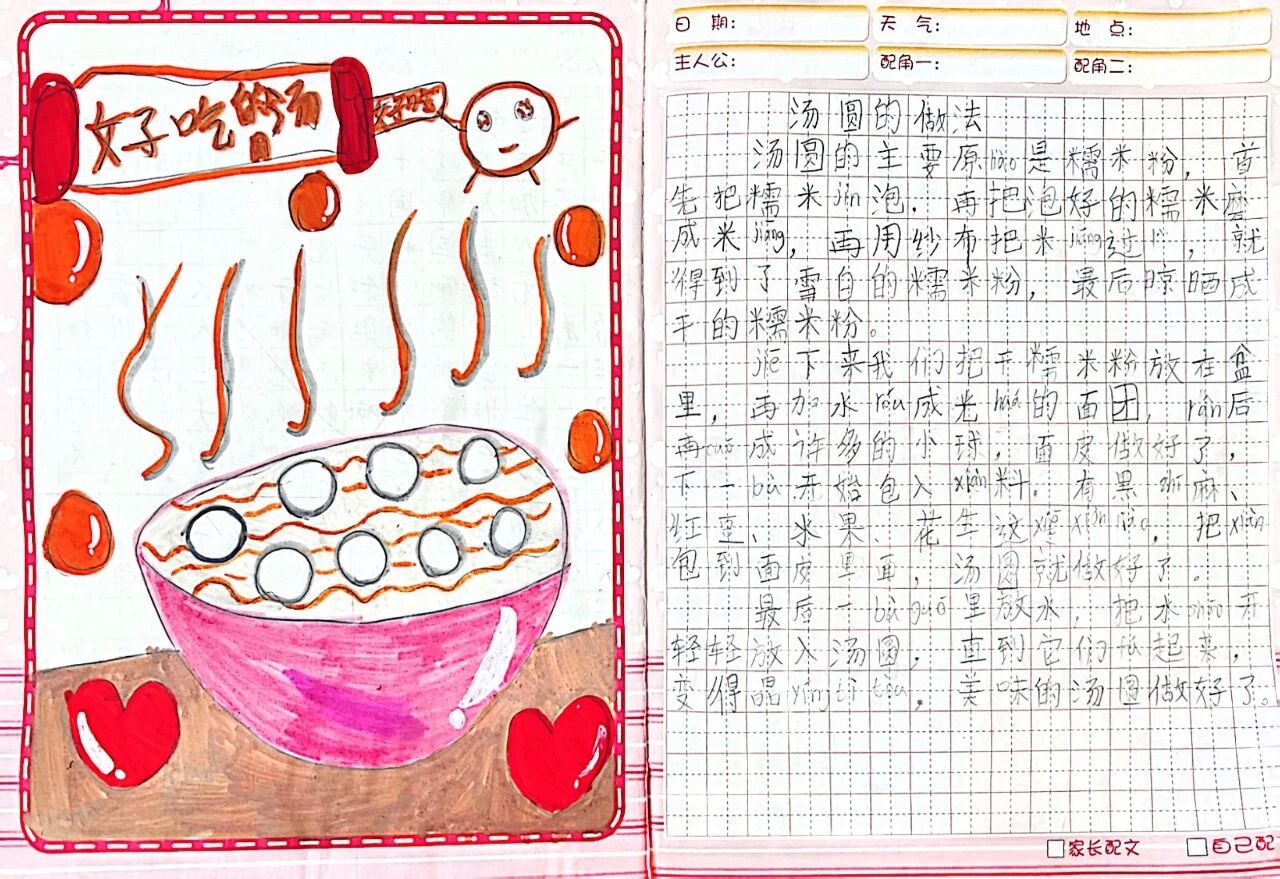 好吃的汤圆
好吃
日 期:
天 气:
地 点:
主人公:
配角一:
配角二:
汤圆的做法
汤圆的主要原liào是糯米粉，首
先把糯米jìn泡，再把泡好的糯米磨
成米jiāng，再用纱布把米jiāng过，就
得到了雪白的糯米粉，最后晾晒成
干的糯米粉。
jiē下来我们把干糯米粉放在盆
里，再加水róu成光huá的面团，rán后
再cuō成许多的小球，面皮做好了，
下一bù开始包入xiàn料，有黑zhī麻、
红豆、水果、花生这xiē xiàn liào，把xiàn
包到面皮里面，汤圆就做好了。
最后一bù guō里放水，把水shāo开
轻轻放入汤圆，直到它们起来，
变得晶yíng tī tòu，美味的汤圆做好了。
家长配文
自己配